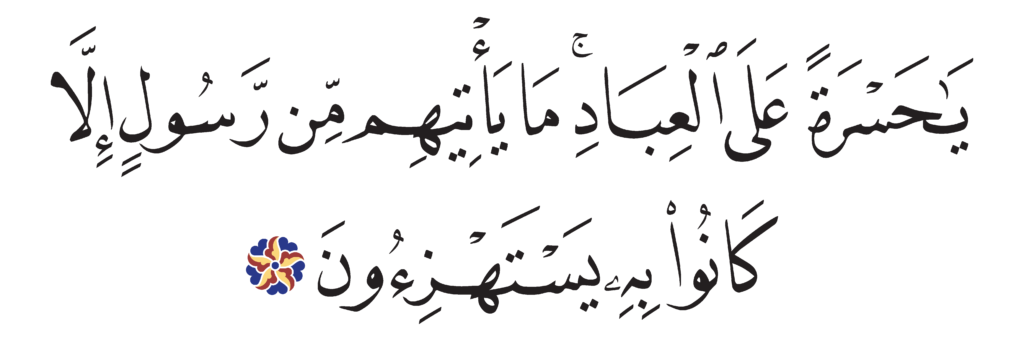 يَٰحَسْرَةً عَلَى ٱلْعِبَادِ ۚ مَا يَأْتِيهِم مِّن رَّسُولٍ إِلَّا
كَانُوا۟ بِهِۦ يَسْتَهْزِءُونَ